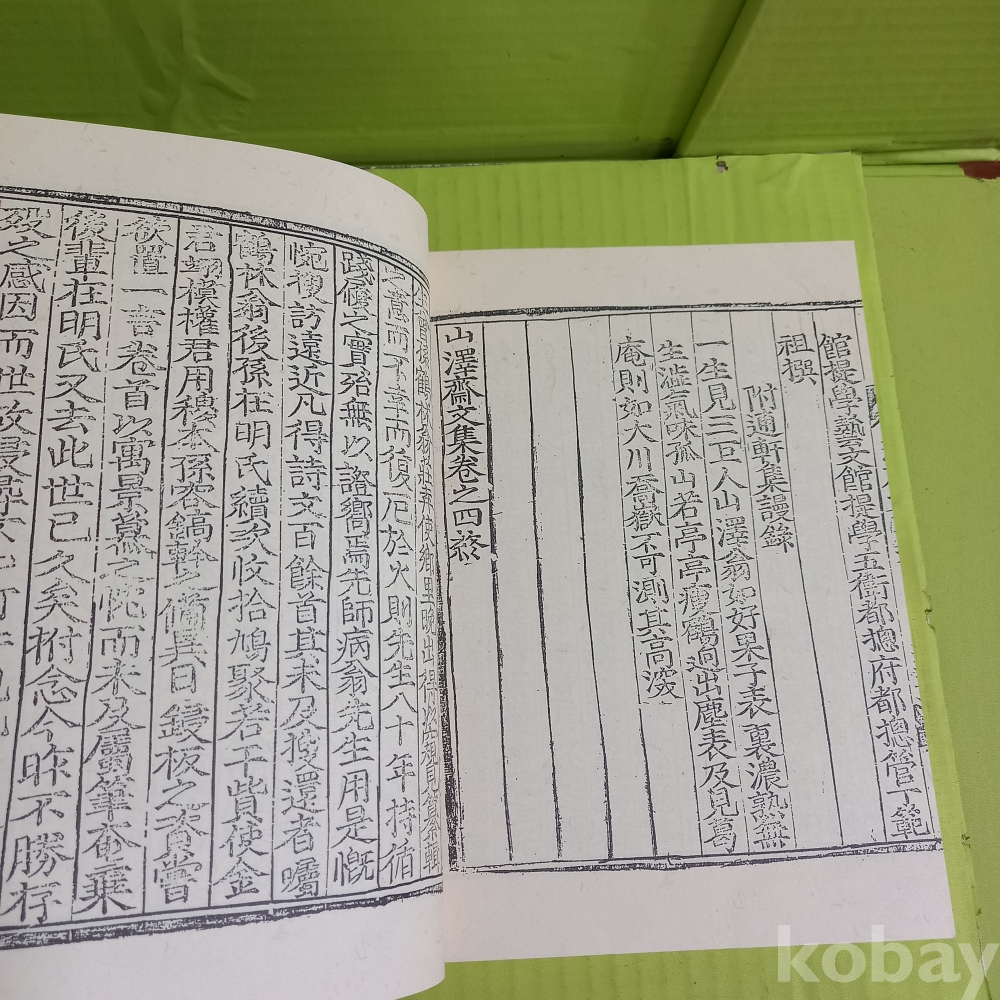 館提學藝文館提學五衛都摠府都摠管丁範
祖撰
附通軒集謾錄
一生見三四人山澤翁如好果子表裏濃熟無
生澁氣味孤山若亭亭瘦鶴逈出塵表及見葛
庵則如大川喬嶽不可測其高深
山澤齋文集卷之四終
之意而不幸而復厄於火則先生八十年持循
踐履之實殆無以證嚮焉先師病翁先生用是慨
惋搜訪遠近凡得詩文百餘首其未及搜還者囑
鶴林翁後孫在明氏續次收拾鳩聚若干貲使金
君翊模權君用穆本孫容鎬幹之備異日鋟板之資嘗
欲置一言卷首以寓景慕之忱而未及屬筆奄棄
後輩在明氏又去此世已久矣拊念今昨不勝存
歿之感因而世故
kobay